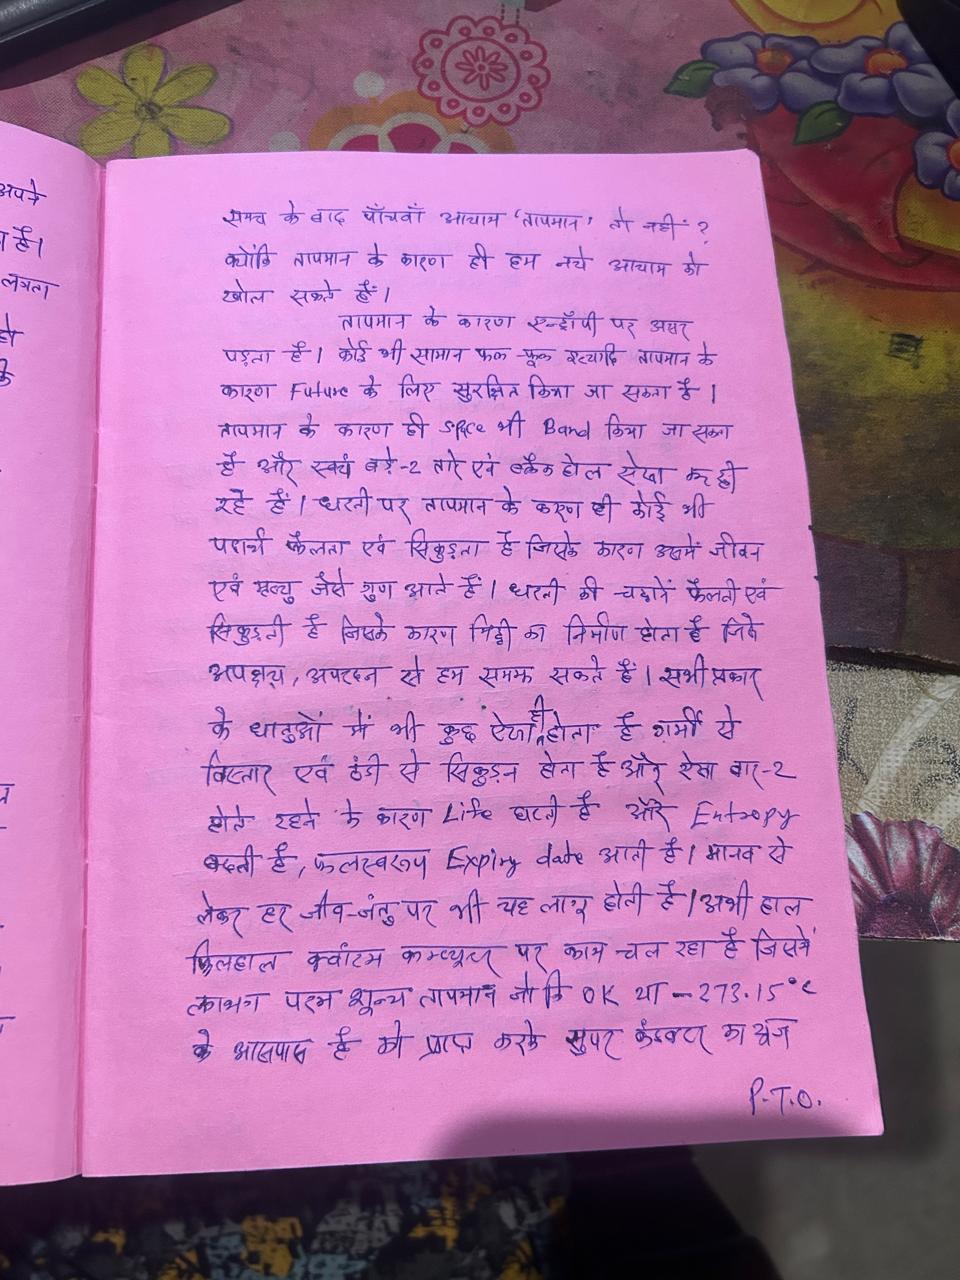 अपने
है।
समय के बाद पाँचवाँ आयाम 'तापमान' तो नहीं ?
क्योंकि तापमान के कारण ही हम नये आयाम को
खोल सकते हैं।
तापमान के कारण एन्ट्रॉपी पर असर
पड़ता है। कोई भी सामान फल-फूल इत्यादि तापमान के
कारण Future के लिए सुरक्षित किया जा सकता है।
तापमान के कारण ही space भी Band किया जा सकता
है और स्वयं बड़े-2 तारे एवं ब्लैक होल ऐसा कर ही
रहे हैं। धरती पर तापमान के कारण ही कोई भी
पदार्थ फैलता एवं सिकुड़ता है जिसके कारण उसमें जीवन
एवं मृत्यु जैसे गुण आते हैं। धरती की चट्टानें फैलती एवं
सिकुड़ती है जिसके कारण मिट्टी का निर्माण होता है जिसे
अपक्षय, अपरदन से हम समझ सकते हैं। सभी प्रकार
के धातुओं में भी कुछ ऐसा ही होता है गर्मी से
विस्तार एवं ठंडी से सिकुड़न होता है और ऐसा बार-2
होते रहने के कारण Life घटती है और Entropy
बढ़ती है, फलस्वरूप Expiry date आती है। मानव से
लेकर हर जीव-जंतु पर भी यह लागू होती है। अभी हाल
फिलहाल क्वांटम कम्प्यूटर पर काम चल रहा है जिसमें
लगभग परम शून्य तापमान जो कि 0K या -273.15°C
के आसपास है को प्राप्त करके सुपर कंडक्टर का
P.T.O.